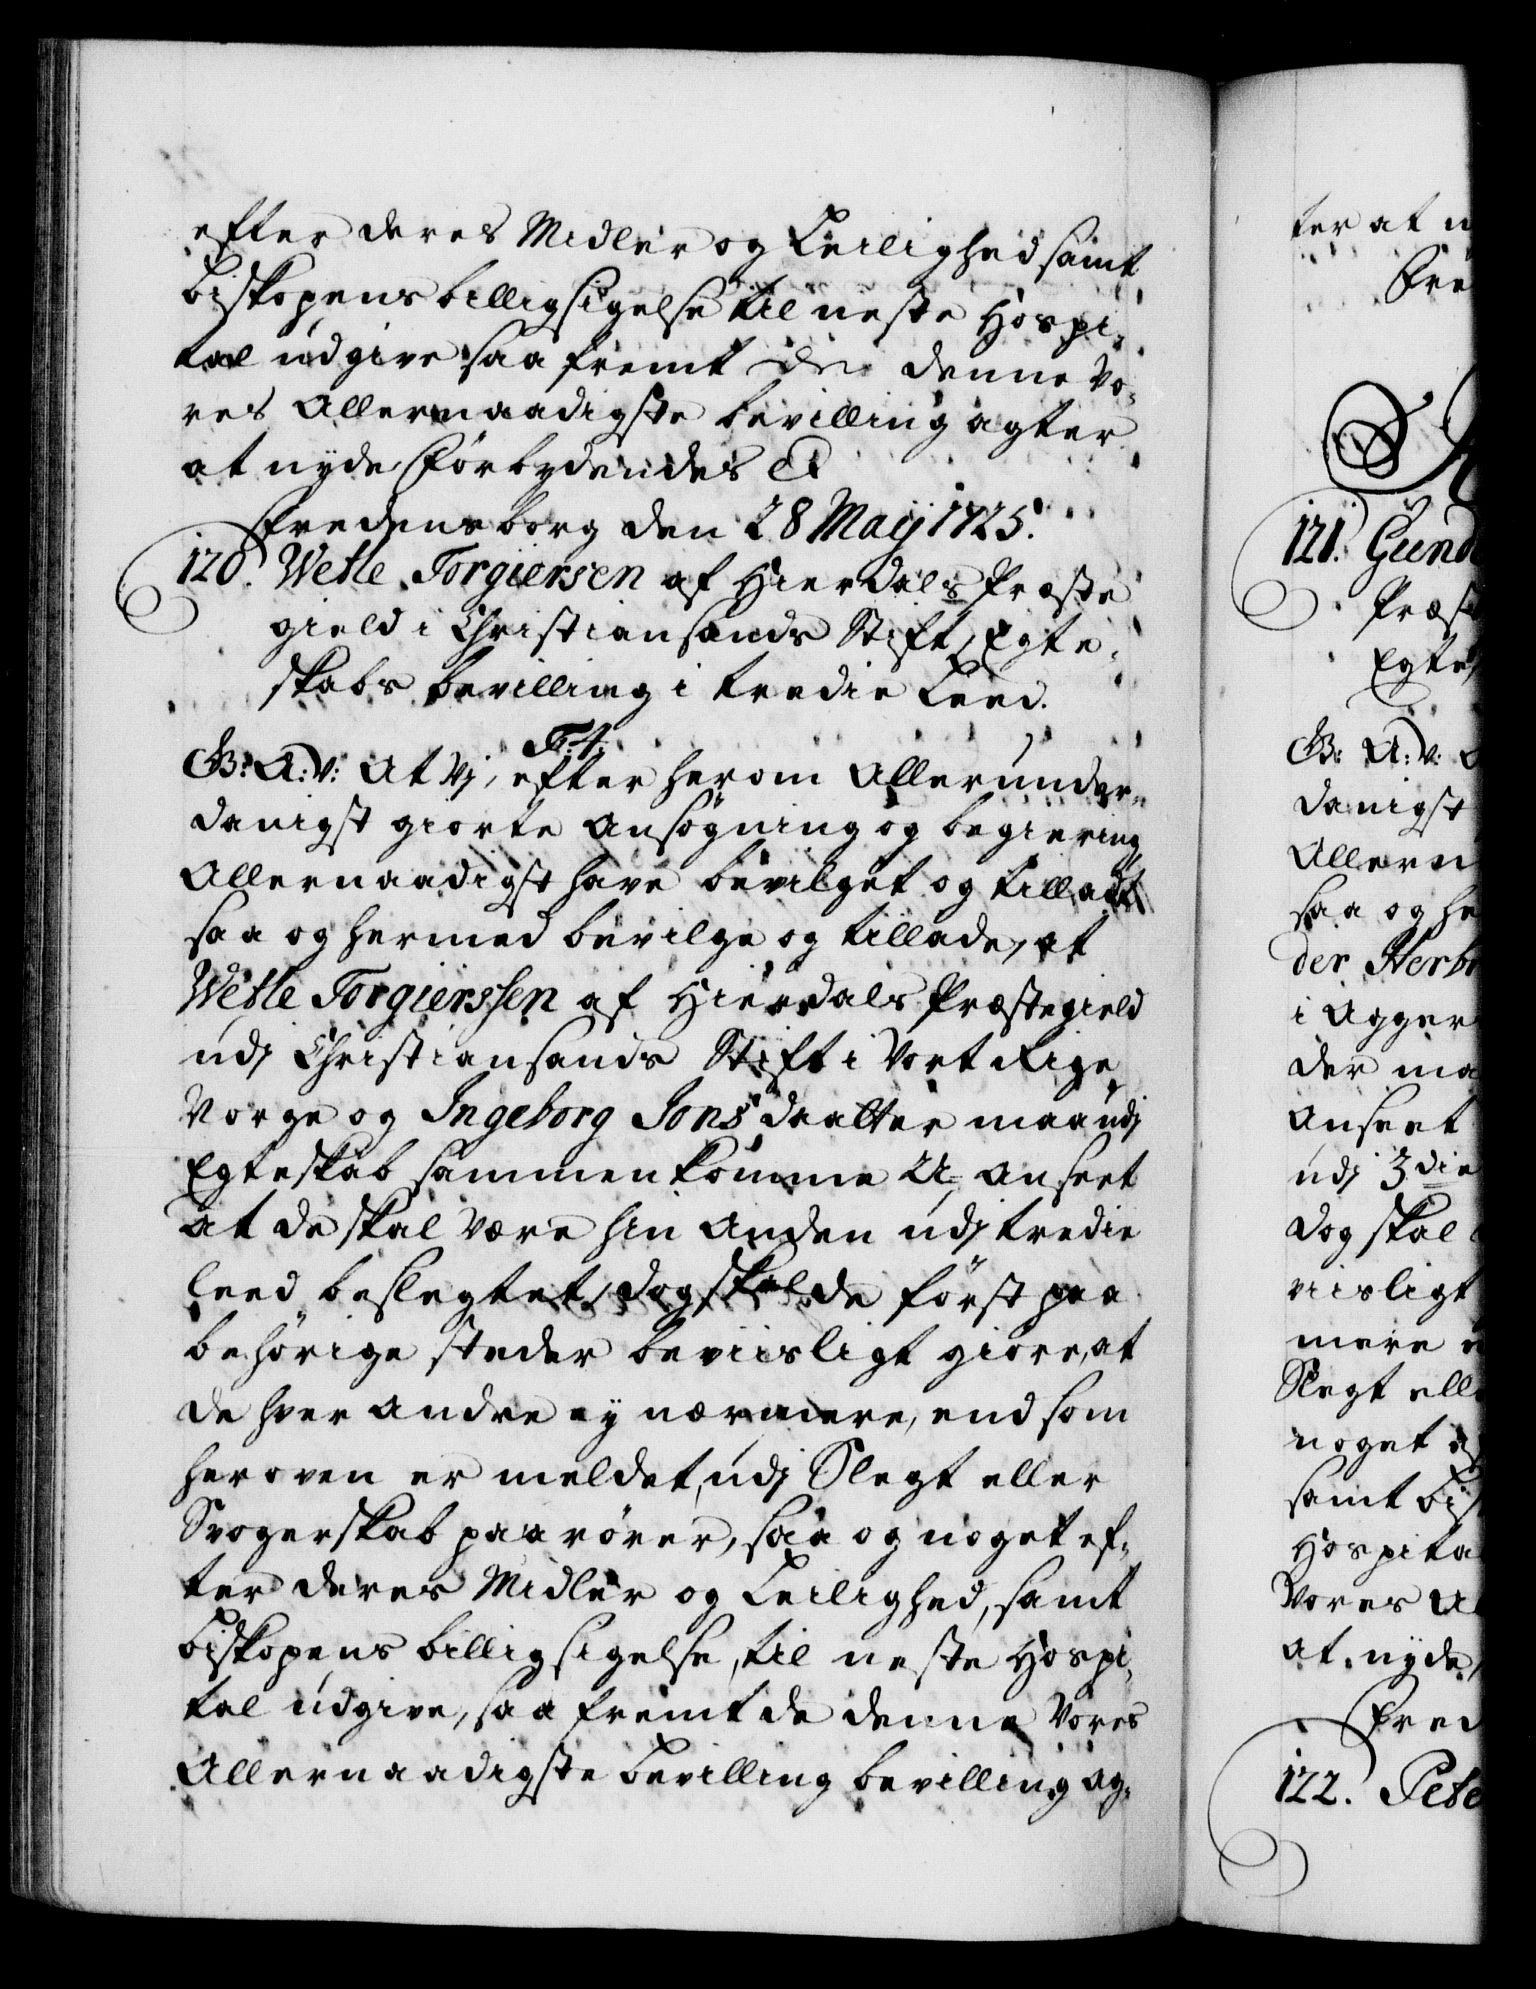 efter deres Midler og Leilighed samt
biskopens billigsigelse til neste Hospi-
tal udgive saa fremt de denne Vo-
res Allernaadigste bevilling agter
at nyde, Forbydendes &
Fredensborg den 28 Maij 1725.
120. Wetle Torgiersen af Hierdals Præste
gield i Christiansands Stift, Egte-
skabs bevilling i tredie Leed.
F: 4.
G: A: V: At Vj, efter herom Allerunder-
danigst giorte Ansøgning og begiering,
Allernaadigst have bevilget og tilladt
saa og hermed bevilge og tillade, at
Wetle Torgierssen af Hierdals Præstegield
udj Christiansands Stift i Vort Rige
Norge og Ingeborg Jons daatter maa udj
Egteskab sammenkomme U-anseet
at de skal være hin Anden udj tredie
leed beslegtet, dog skal de først paa
behørige steder beviisligt giøre, at
de hver andre ey nærmere, end som
her oven er meldet, udj Slegt eller
Svogerskab paarører, saa og noget ef-
ter deres Midler og Leilighed, samt
biskopens billigsigelse, til neste Hospi-
tal udgive, saa fremt de denne Vores
Allernaadigste bevilling bevilling ag-
ter at
Fre
121. Gund
Præst
Egte
G: A: V:
danigst
Allern
saa og he
der Herbr
i Agger
der ma
Anseet
udj 3die
dog skal
viisligt
mere
Slegt elle
noget
samt bis
Hospita
Vores Al
at nyde,
Fred
122. Pete